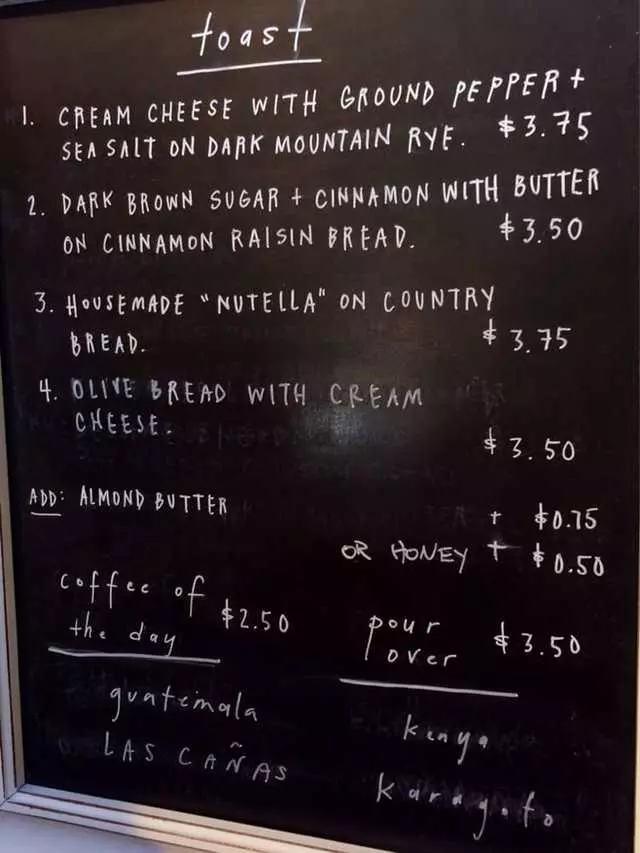 toast
1. CREAM CHEESE WITH GROUND PEPPER +
SEA SALT ON DARK MOUNTAIN RYE. $3.75
2. DARK BROWN SUGAR + CINNAMON WITH BUTTER
ON CINNAMON RAISIN BREAD. $3.50
3. HOUSEMADE "NUTELLA" ON COUNTRY
BREAD. $3.75
4. OLIVE BREAD WITH CREAM
CHEESE. $3.50
ADD: ALMOND BUTTER + $0.75
OR HONEY + $0.50
coffee of
the day $2.50
guatemala
LAS CAÑAS
pour
over $3.50
kenya
karagoto